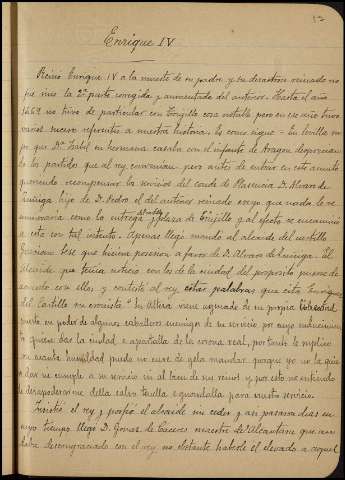 17
Enrique IV
Reinó Enrique IV a la muerte de su padre y su desastroso reinado no
fue mas la 2ª parte corregida y aumentada del anterior. Hasta el año
1469 no hubo de particular con Trujillo cosa notable pero en ese año hubo
varios sucesos referentes a nuestra historia. Es como sigue - La
que Dª Isabel su hermana casarla con el infante de Aragon despreciando
de los partidos que al rey convenian pero antes de entrar en este asunto
queriendo recompensar los servicios del conde de Plasencia D. Alvaro de
Zuñiga hijo de D. Pedro el del anterior reinado creyo que nada le re
muneraria como la entrega de la plaza de Trujillo y al efecto se encaminó
a esta con tal intento. Apenas llegó mandó al alcaide del castillo
Graciano Sese que hiciera posesion a favor de D. Alvaro de Zuniga. El
Alcaide que tenia noticia con los de la ciudad del proposito pusose de
acuerdo con ellos y contestó al rey estas palabras que cita Enriquez
del Castillo su cronista "Su Alteza viene agenado de su propia libertad
puesto en poder de algunos caballeros enemigos de su servicio por cuyo inducimiento
quereis dar la ciudad e apartalla de la corona real, por tanto le suplico
con cuanta humildad puedo no cure de gela mandar porque yo no la quie
ro dar ne cumple a su servicio ni al bien de sus reinos y por esto no entiendo
de desapoderarme della salvo tenella e guardalla para vuestro servicio.
Insistió el rey y porfió el alcaide sin ceder y asi pasaron dias en
cuyo tiempo llegó D. Gomez de Caceres maestre de Alcantara que an
daba descongraciado con el rey, no obstante haberle el elevado a aquel